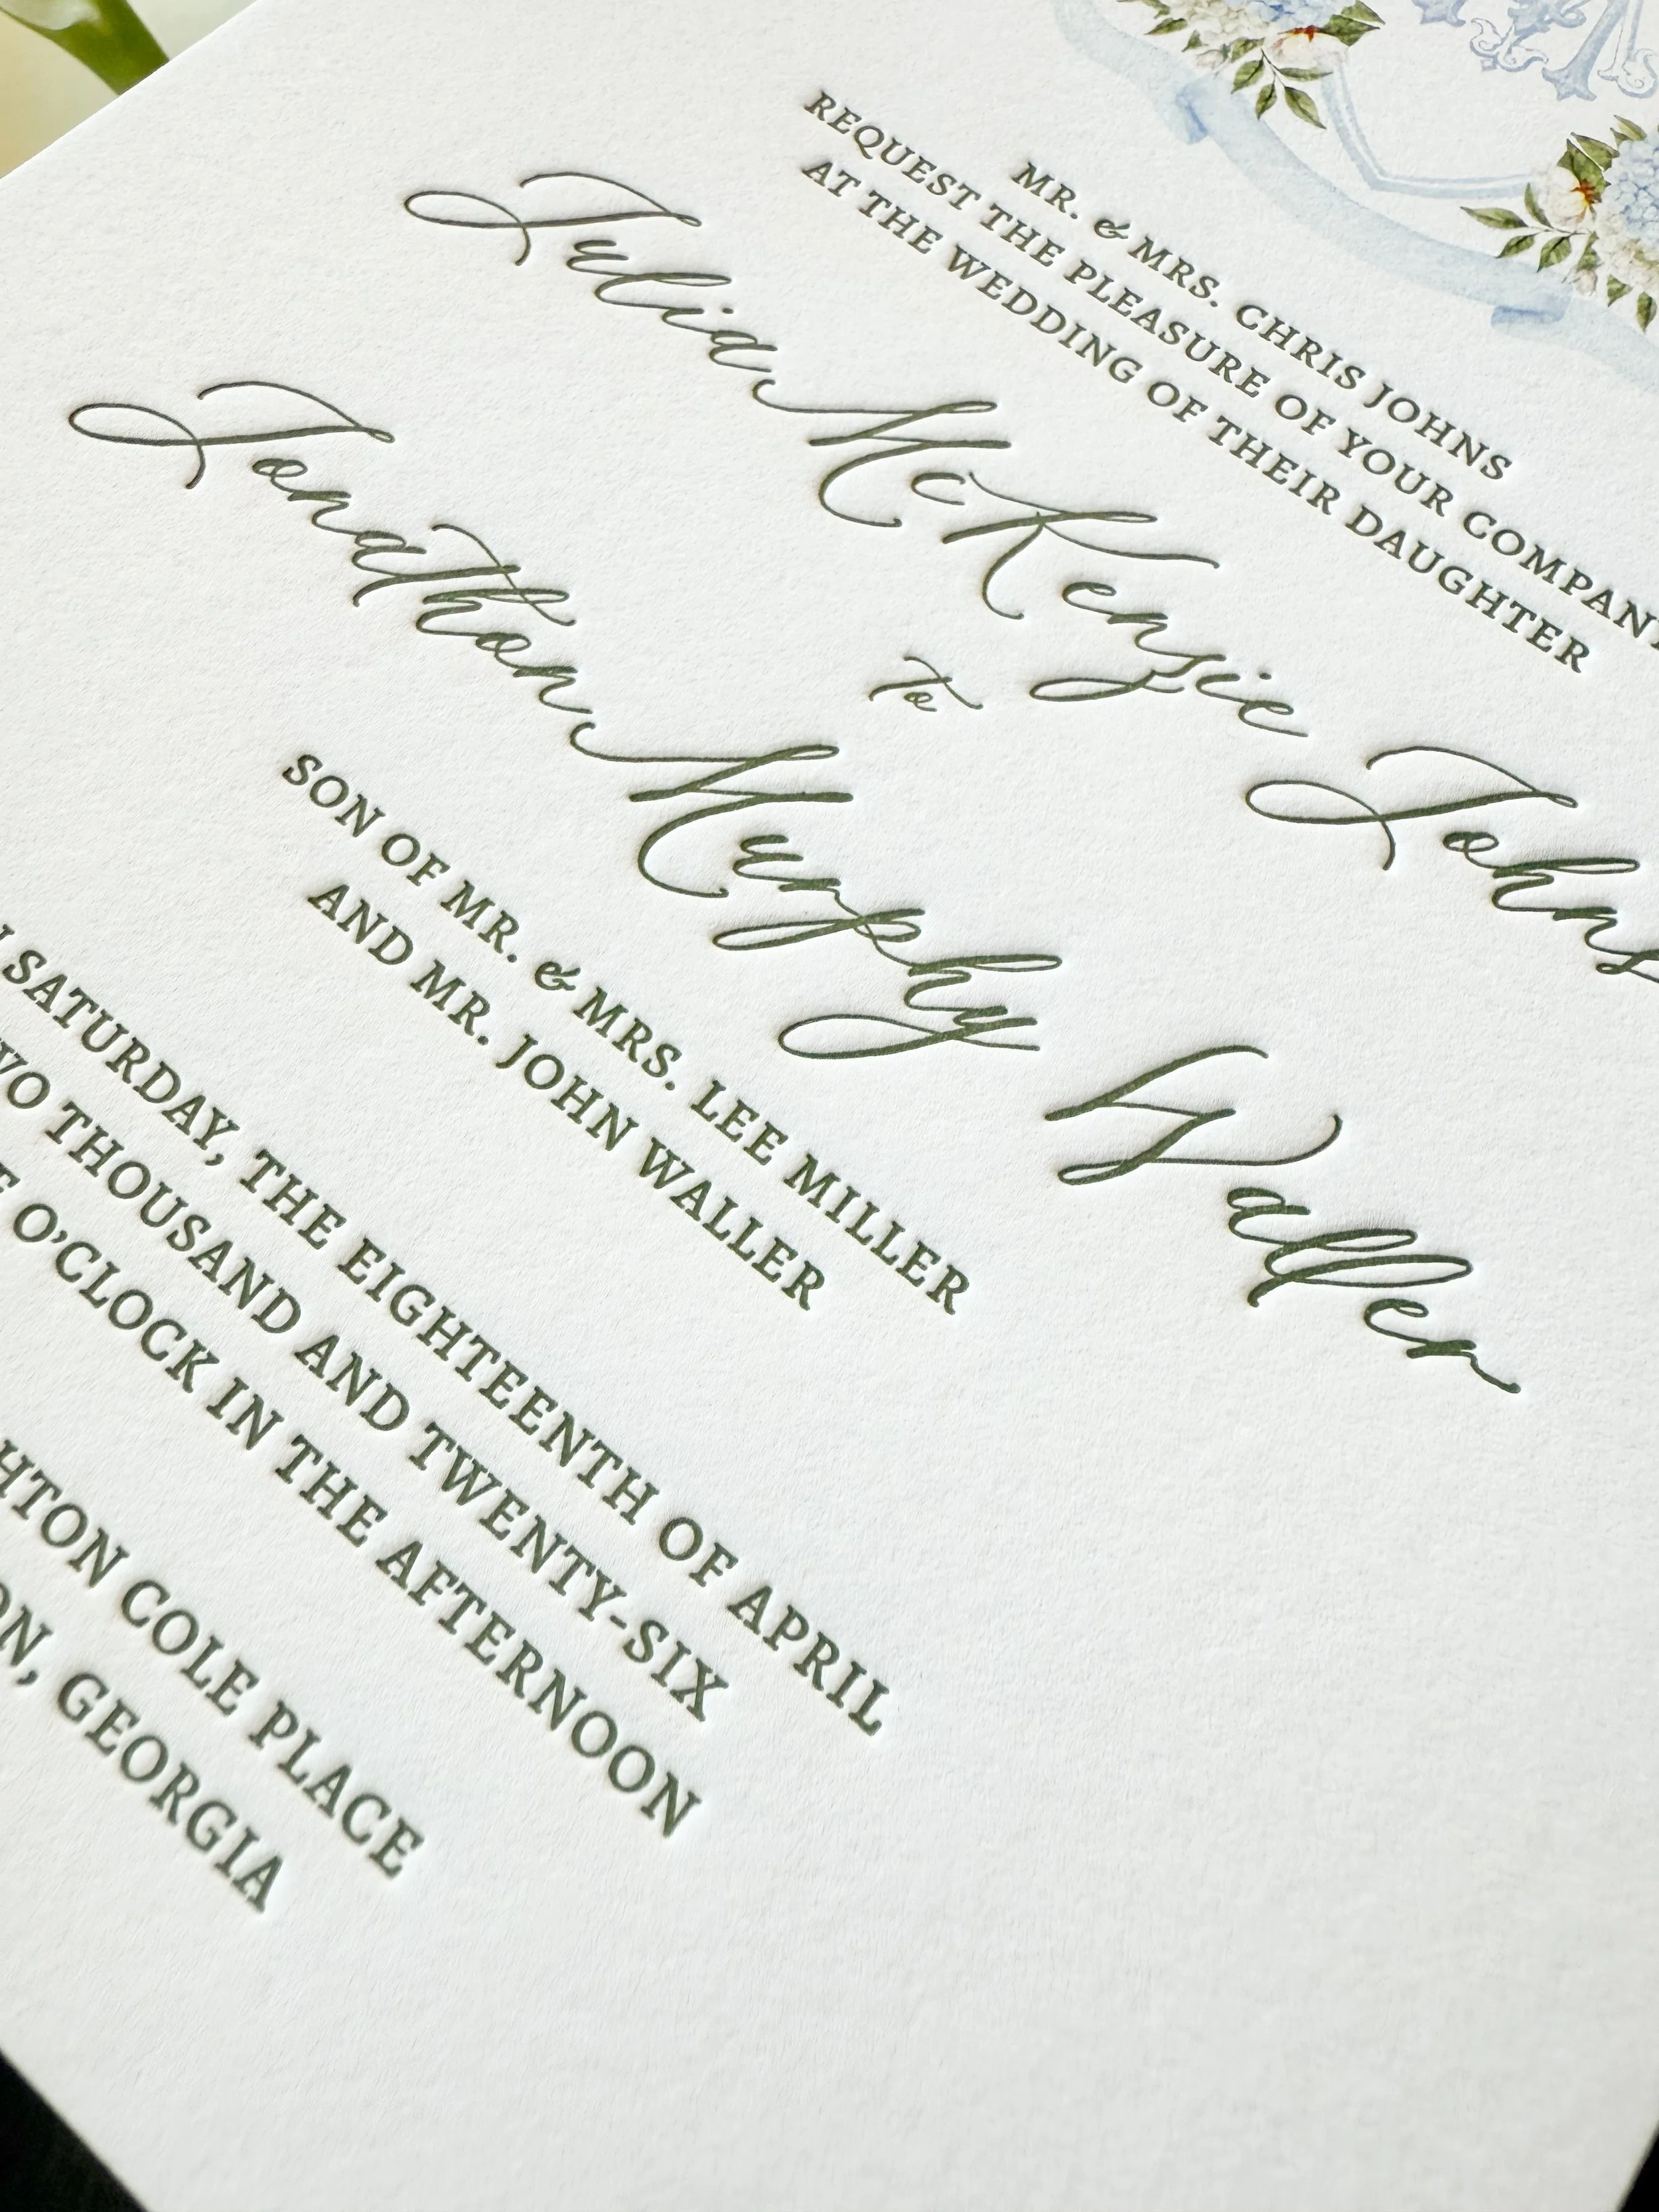 MR. & MRS. CHRIS JOHNS
REQUEST THE PLEASURE OF YOUR
AT THE WEDDING OF THEIR DAUGHTER
Julia McKenzie Johns
to
Jonathon Murphy Waller
SON OF MR. & MRS. LEE MILLER
AND MR. JOHN WALLER
SATURDAY, THE EIGHTEENTH OF APRIL
THOUSAND AND TWENTY-SIX
O’CLOCK IN THE AFTERNOON
COLE PLACE
GEORGIA